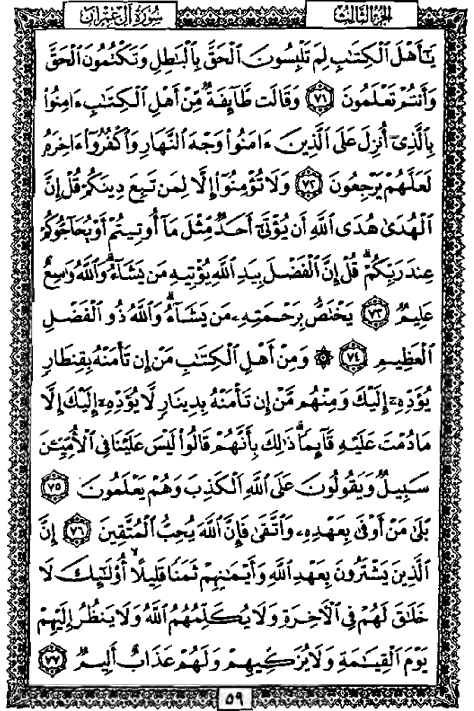 سُورَةُ آلِ عِمْرَانَ
الجزء الثالث
يَٰٓأَهْلَ ٱلْكِتَٰبِ لِمَ تَلْبِسُونَ ٱلْحَقَّ بِٱلْبَٰطِلِ وَتَكْتُمُونَ ٱلْحَقَّ
وَأَنتُمْ تَعْلَمُونَ ٧١ وَقَالَت طَّآئِفَةٌ مِّنْ أَهْلِ ٱلْكِتَٰبِ ءَامِنُوا۟
بِٱلَّذِىٓ أُنزِلَ عَلَى ٱلَّذِينَ ءَامَنُوا۟ وَجْهَ ٱلنَّهَارِ وَٱكْفُرُوٓا۟ ءَاخِرَهُۥ
لَعَلَّهُمْ يَرْجِعُونَ ٧٢ وَلَا تُؤْمِنُوٓا۟ إِلَّا لِمَن تَبِعَ دِينَكُمْ قُلْ إِنَّ
ٱلْهُدَىٰ هُدَى ٱللَّهِ أَن يُؤْتَىٰٓ أَحَدٌ مِّثْلَ مَآ أُوتِيتُمْ أَوْ يُحَآجُّوكُمْ
عِندَ رَبِّكُمْ ۗ قُلْ إِنَّ ٱلْفَضْلَ بِيَدِ ٱللَّهِ يُؤْتِيهِ مَن يَشَآءُ ۗ وَٱللَّهُ وَٰسِعٌ
عَلِيمٌ ٧٣ يَخْتَصُّ بِرَحْمَتِهِۦ مَن يَشَآءُ ۗ وَٱللَّهُ ذُو ٱلْفَضْلِ
ٱلْعَظِيمِ ٧٤ ۞ وَمِنْ أَهْلِ ٱلْكِتَٰبِ مَنْ إِن تَأْمَنْهُ بِقِنطَارٍ
يُؤَدِّهِۦٓ إِلَيْكَ وَمِنْهُم مَّنْ إِن تَأْمَنْهُ بِدِينَارٍ لَّا يُؤَدِّهِۦٓ إِلَيْكَ إِلَّا
مَا دُمْتَ عَلَيْهِ قَآئِمًا ۗ ذَٰلِكَ بِأَنَّهُمْ قَالُوا۟ لَيْسَ عَلَيْنَا فِى ٱلْأُمِّيِّـۧنَ
سَبِيلٌ وَيَقُولُونَ عَلَى ٱللَّهِ ٱلْكَذِبَ وَهُمْ يَعْلَمُونَ ٧٥
بَلَىٰ مَنْ أَوْفَىٰ بِعَهْدِهِۦ وَٱتَّقَىٰ فَإِنَّ ٱللَّهَ يُحِبُّ ٱلْمُتَّقِينَ ٧٦ إِنَّ
ٱلَّذِينَ يَشْتَرُونَ بِعَهْدِ ٱللَّهِ وَأَيْمَٰنِهِمْ ثَمَنًا قَلِيلًا أُو۟لَٰٓئِكَ لَا
خَلَٰقَ لَهُمْ فِى ٱلْءَاخِرَةِ وَلَا يُكَلِّمُهُمُ ٱللَّهُ وَلَا يَنظُرُ إِلَيْهِمْ
يَوْمَ ٱلْقِيَٰمَةِ وَلَا يُزَكِّيهِمْ وَلَهُمْ عَذَابٌ أَلِيمٌ ٧٧
٥٩